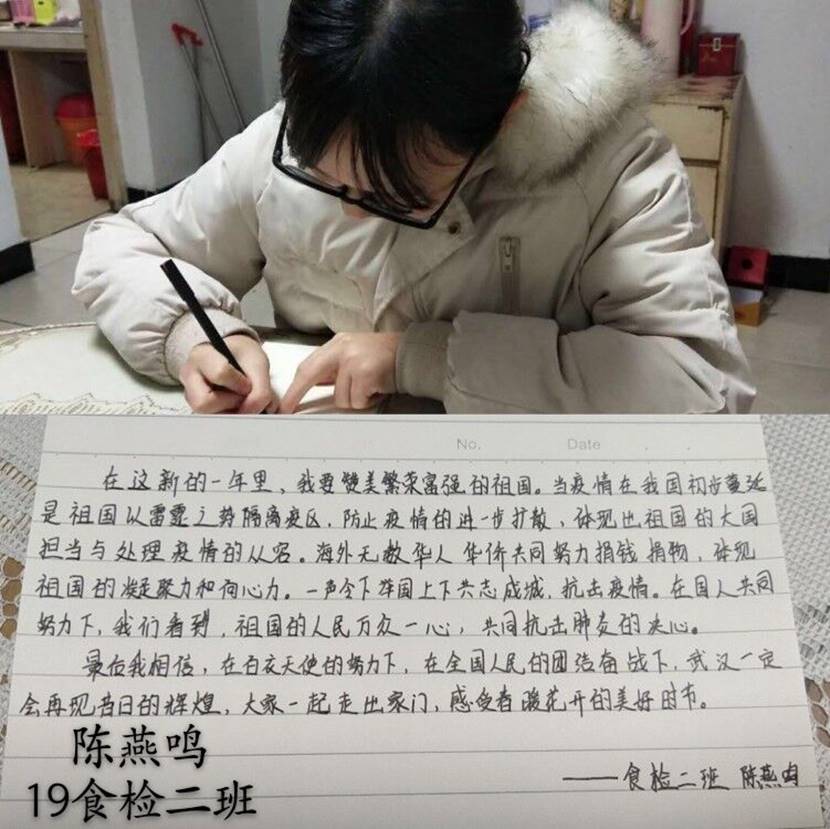 No. Date
在这新的一年里、我要赞美繁荣富强的祖国。当疫情在我国初步蔓延
是祖国以雷霆之势隔离疫区，防止疫情的进一步扩散，体现出祖国的大国
担当与处理疫情的从容。海外无数华人华侨共同努力捐钱捐物，体现
祖国的凝聚力和向心力。一声令下举国上下共志成城，抗击疫情。在国人共同
努力下，我们看到，祖国的人民万众一心，共同抗击肺炎的决心。
最后我相信，在白衣天使的努力下，在全国人民的团结奋战下，武汉一定
会再现昔日的辉煌，大家一起走出家门，感受春暖花开的美好时节。
——食检二班 陈燕鸣
陈燕鸣
19食检二班